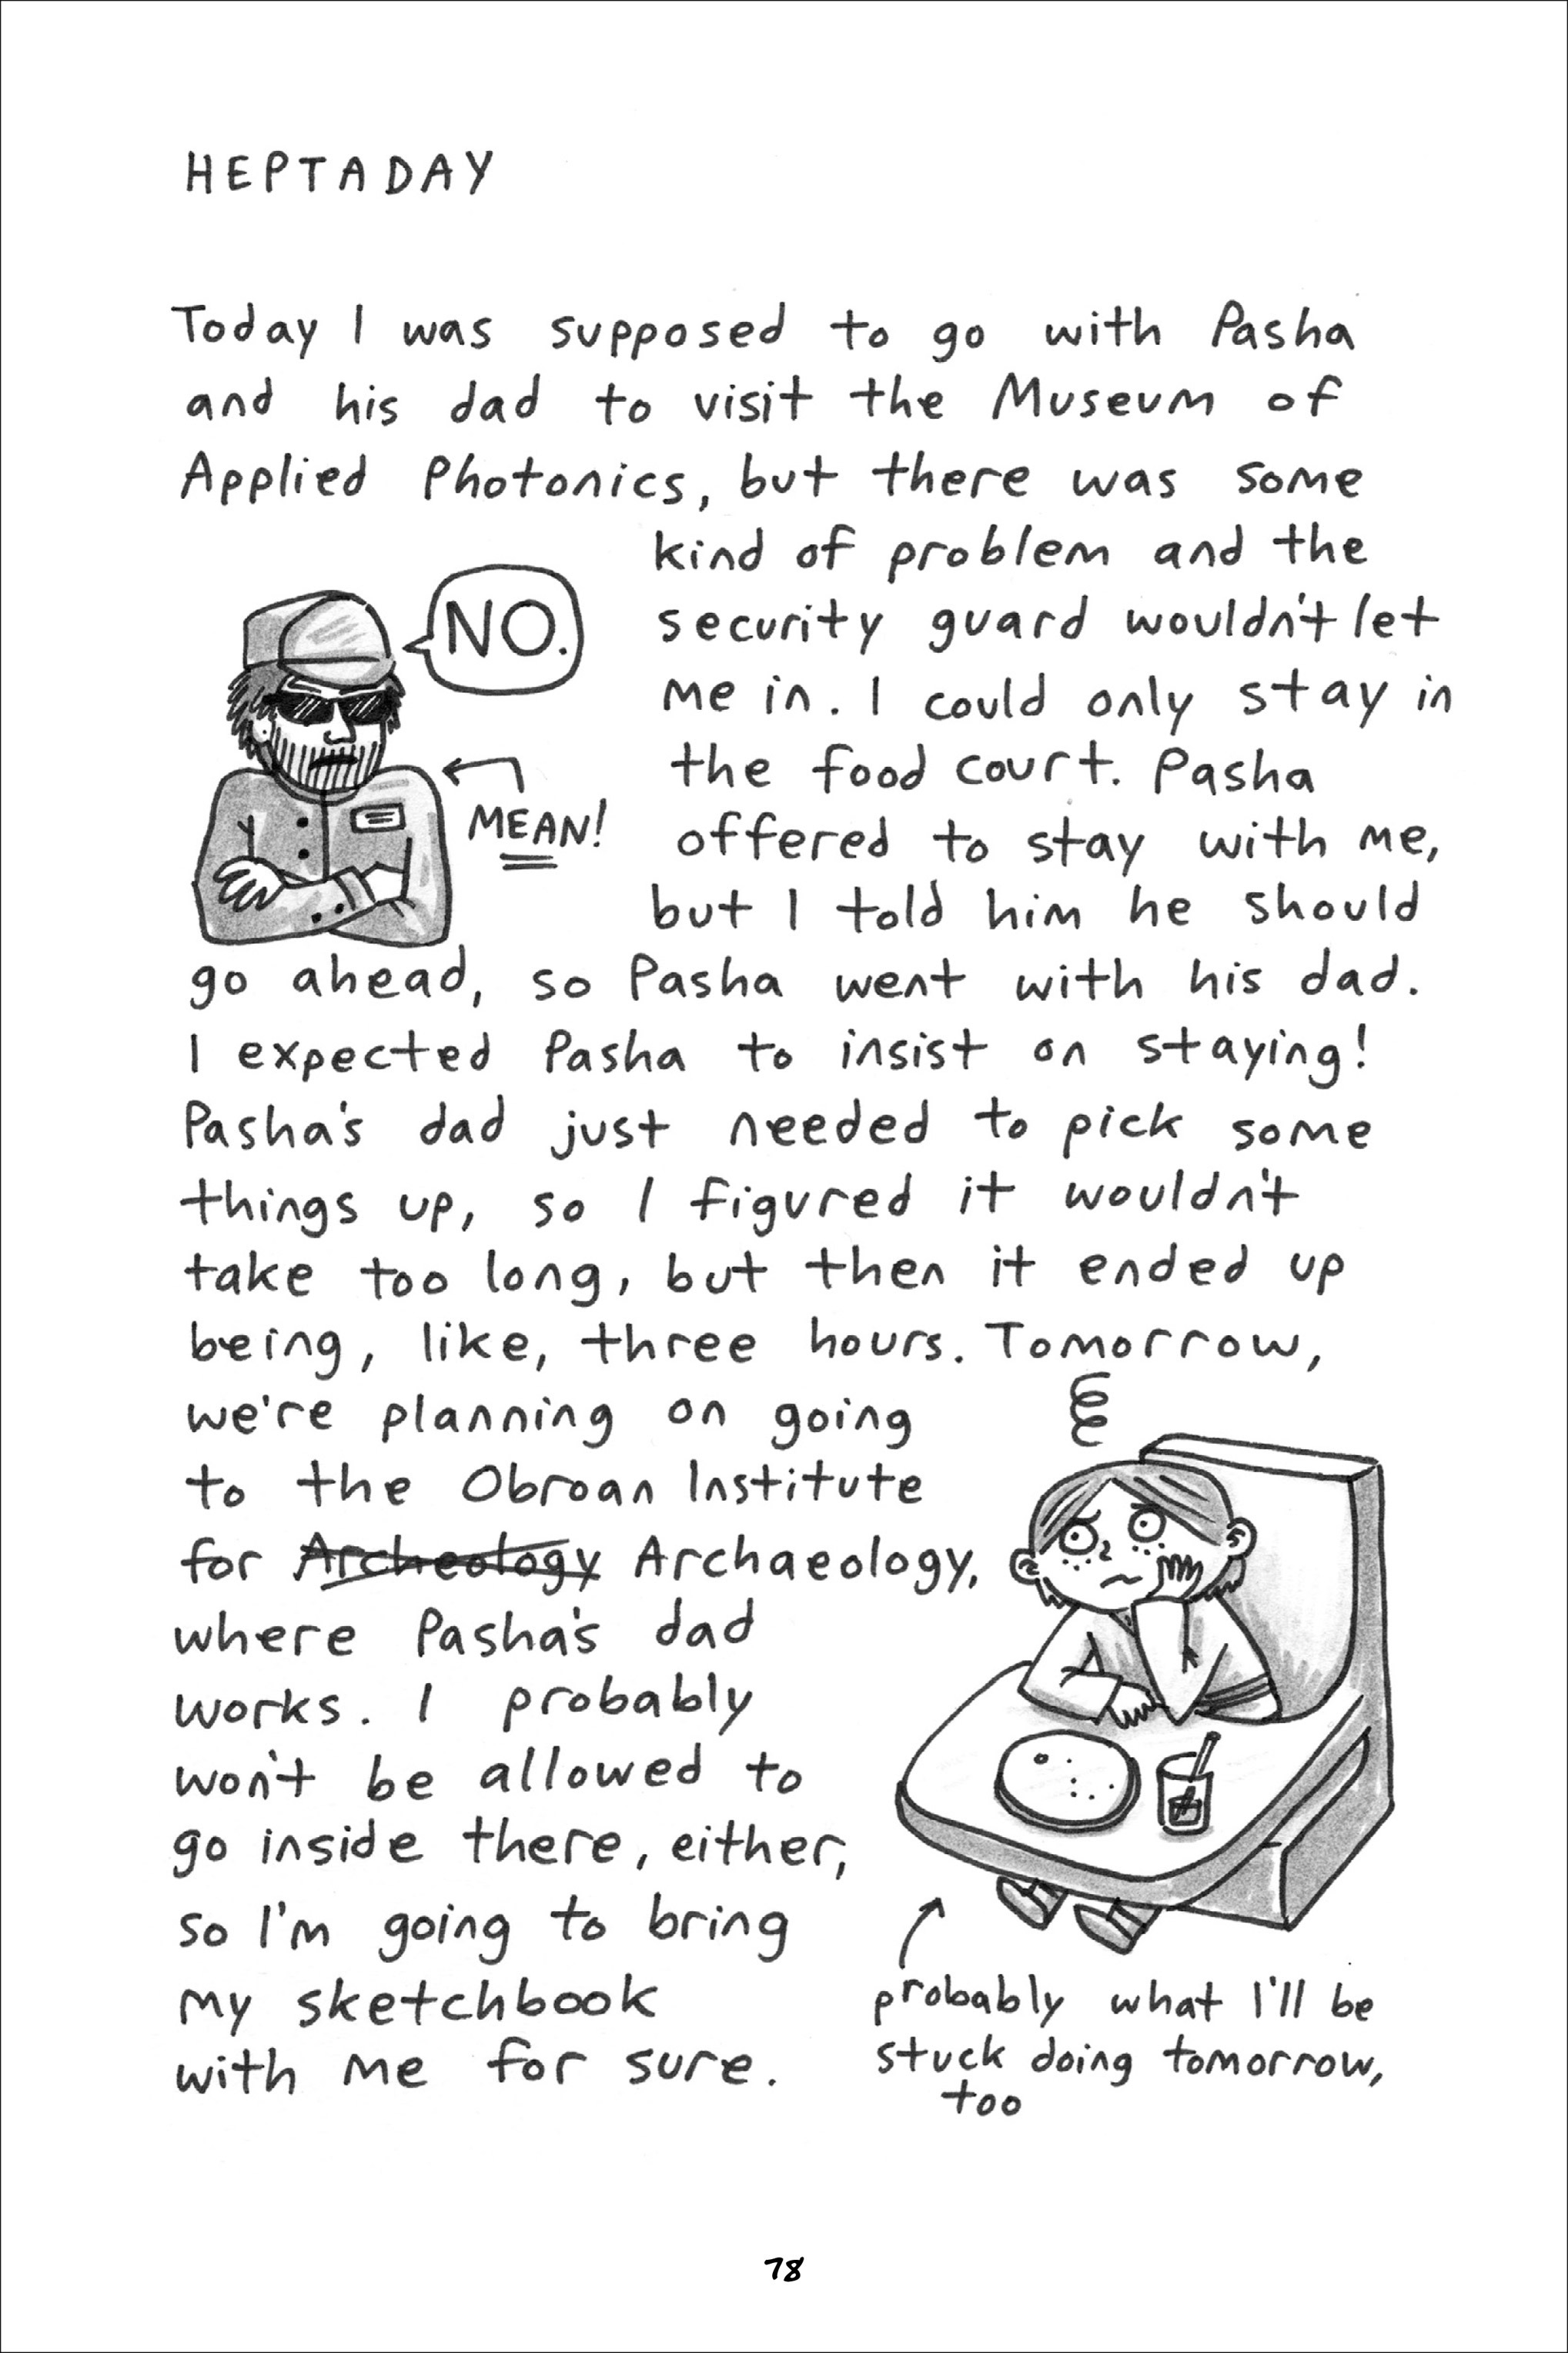 HEPTADAY
Today I was supposed to go with Pasha
and his dad to visit the Museum of
Applied Photonics, but there was some
kind of problem and the
security guard wouldn't let
me in. I could only stay in
the food court. Pasha
offered to stay with me,
but I told him he should
NO.
MEAN!
go ahead, so Pasha went with his dad.
I expected Pasha to insist on staying!
Pasha's dad just needed to pick some
things up, so I figured it wouldn't
take too long, but then it ended up
being, like, three hours. Tomorrow,
we're planning on going
to the Obroan Institute
for Archeology Archaeology,
where Pasha's dad
works. I probably
won't be allowed to
go inside there, either,
so I'm going to bring
my sketchbook
with me for sure.
probably what I'll be
stuck doing tomorrow,
too
78